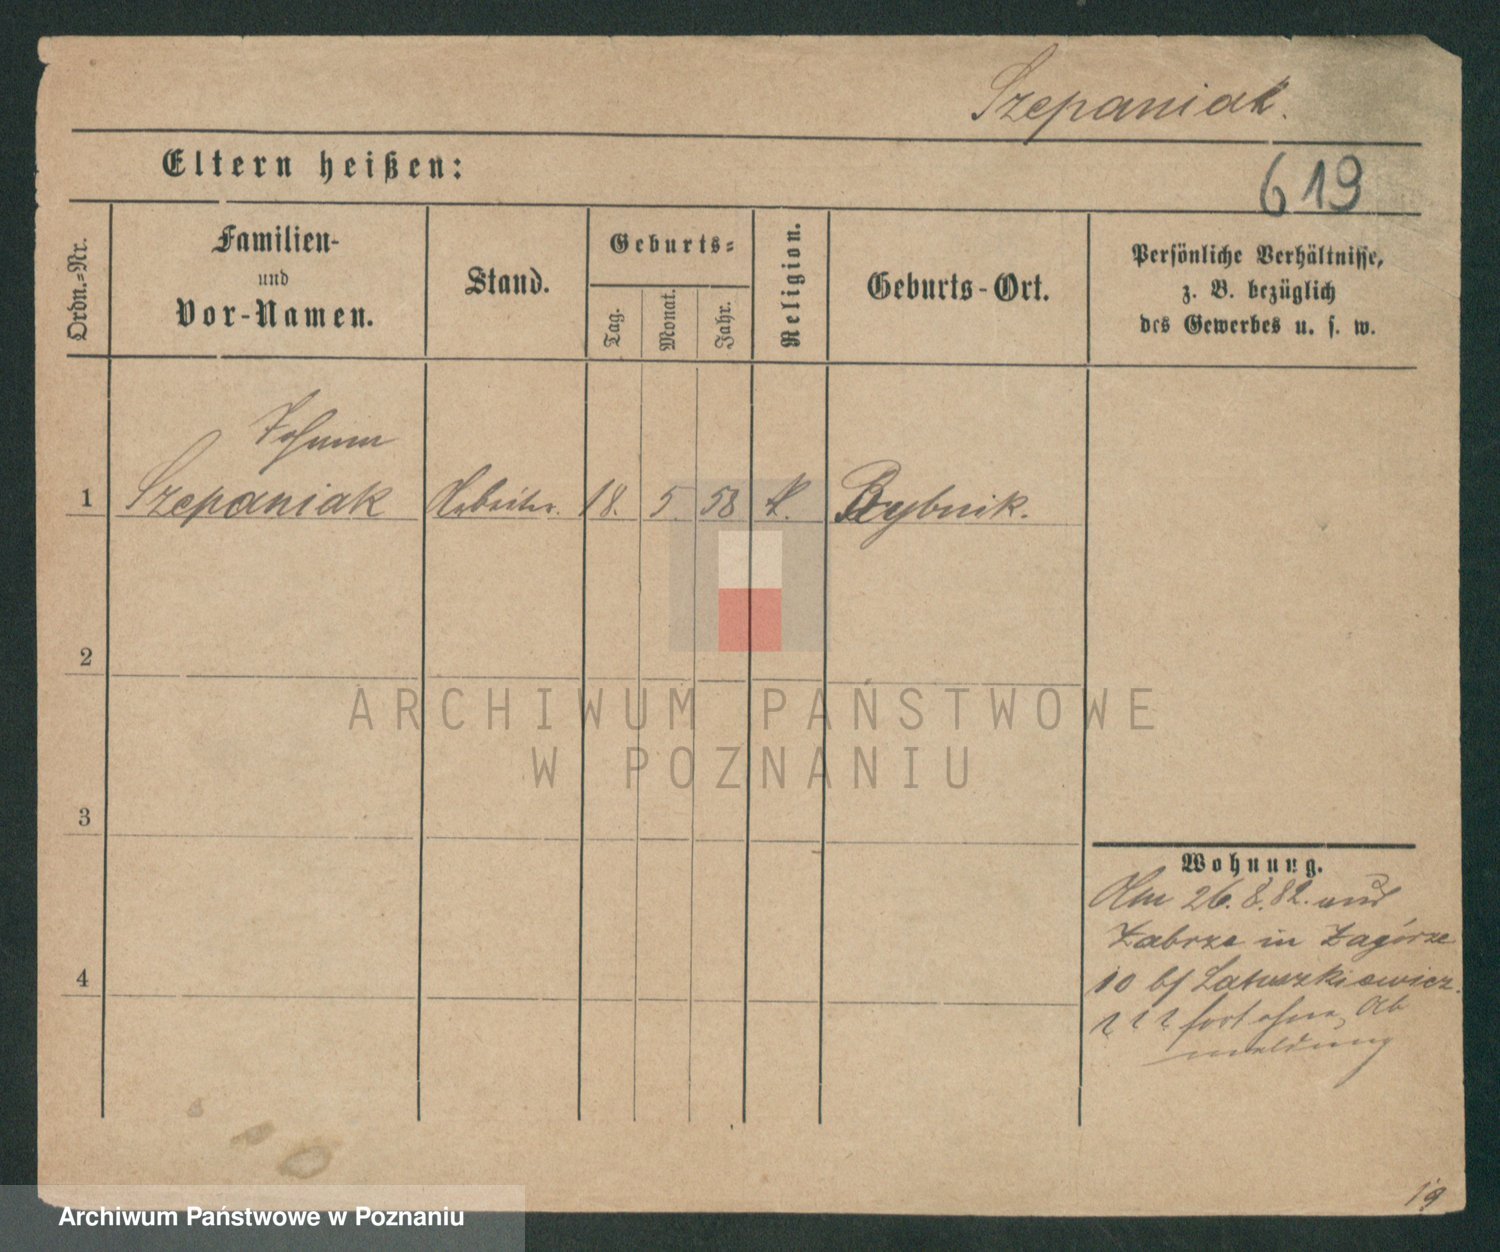 Szepaniak.
Eltern heißen:
619
Ordn.-Nr.
Familien-
und
Vor-Namen.
Stand.
Geburts-
Tag.
Monat.
Jahr.
Religion.
Geburts-Ort.
Persönliche Verhältnisse,
z. B. bezüglich
des Gewerbes u. s. w.
Johann
1 Szepaniak Arbeiter. 18. 5 58 k. Rybnik.
2
ARCHIWUM PAŃSTWOWE
W POZNANIU
3
Wohnung.
Am 26. 8. 82. aus
Zabrze in Zagórze
4
10 bei Latuszkiewicz.
fort ohne Ab
meldung
19
Archiwum Państwowe w Poznaniu